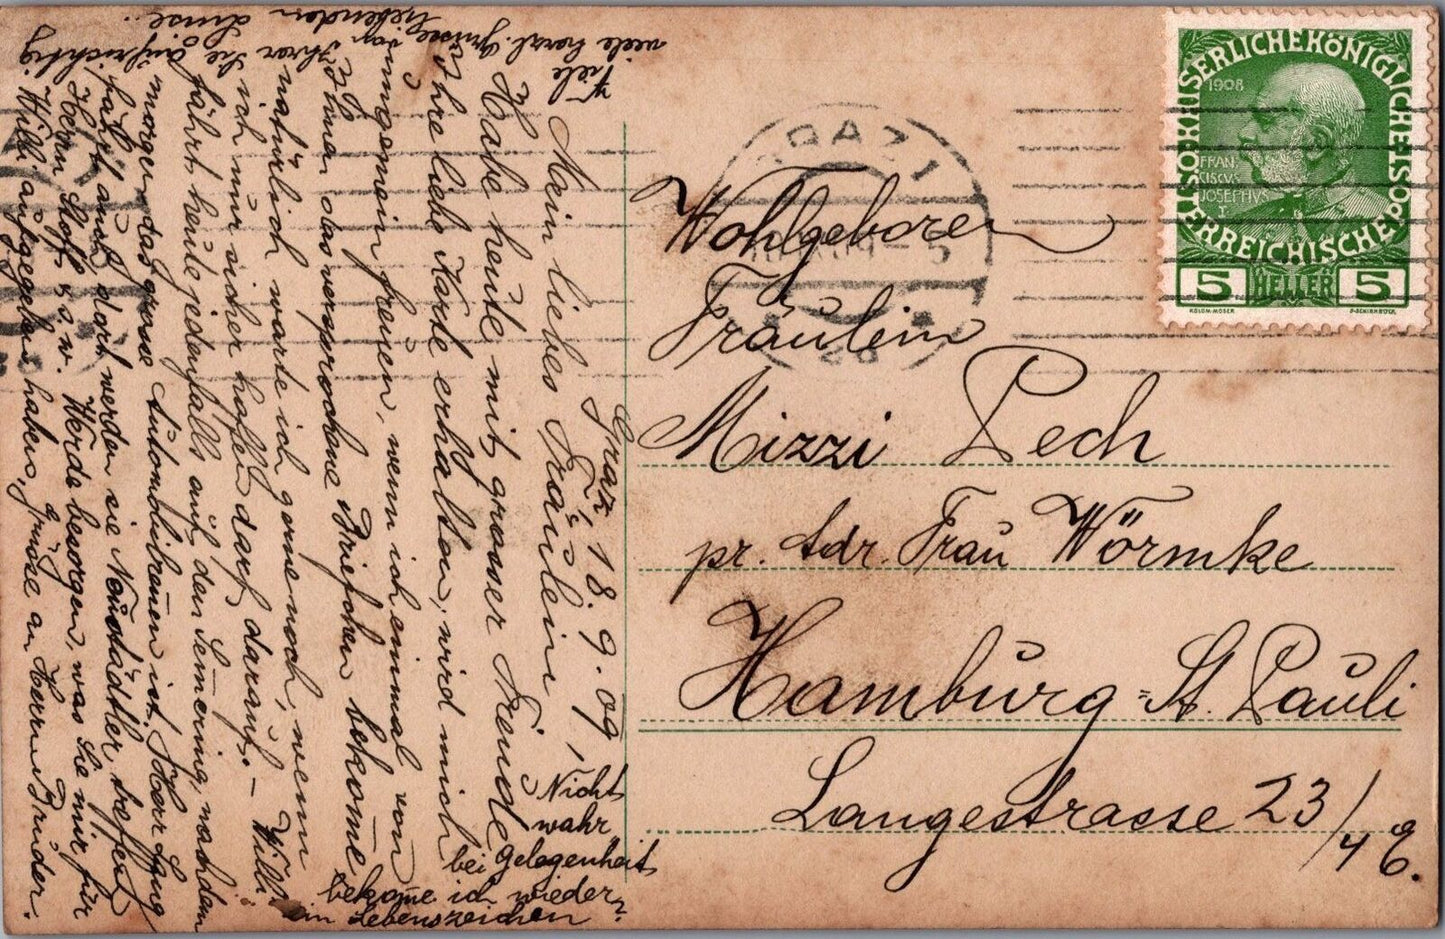 KAISERLICHEKÖNIGLICHE ÖSTERREICHISCHE POST
1908
FRAN
CISCVS
JOSEPHVS
I
5 HELLER 5
KOLOM·MOSER
F·SCHIRNBÖCK
GRAZ 1
Wohlgeboren
Fräulein
Mizzi Pech
pr. Adr. Frau Wörmke
Hamburg=St. Pauli
Langestrasse 23/4 E.
Graz, 18.9.09.
Mein liebes Fräulein!
Habe heute mit grosser Freude
Ihre liebe Karte erhalten, wird mich
ungemein freuen, wenn ich einmal von
Ihnen das versprochene Briefchen bekome
natürlich warte ich gerne noch, wenn
ich nur sicher hoffen darf darauf. – Willi
fährt heute jedenfalls auf den Semering, nachdem
morgen das grosse Automobilrennen ist, Herr
fährt auch dort werden sie Neustädtler treffen
Herrn Stoff u.s.w. Werde besorgen, was Sie mir für
Willi aufgegeben haben, Grüsse an Herrn Bruder.
Viele
viele herzl. Grüsse von Ihrer Sie aufrichtig
liebenden Luise.
Nicht
wahr
bei Gelegenheit
bekome ich wieder
ein Lebenszeichen?